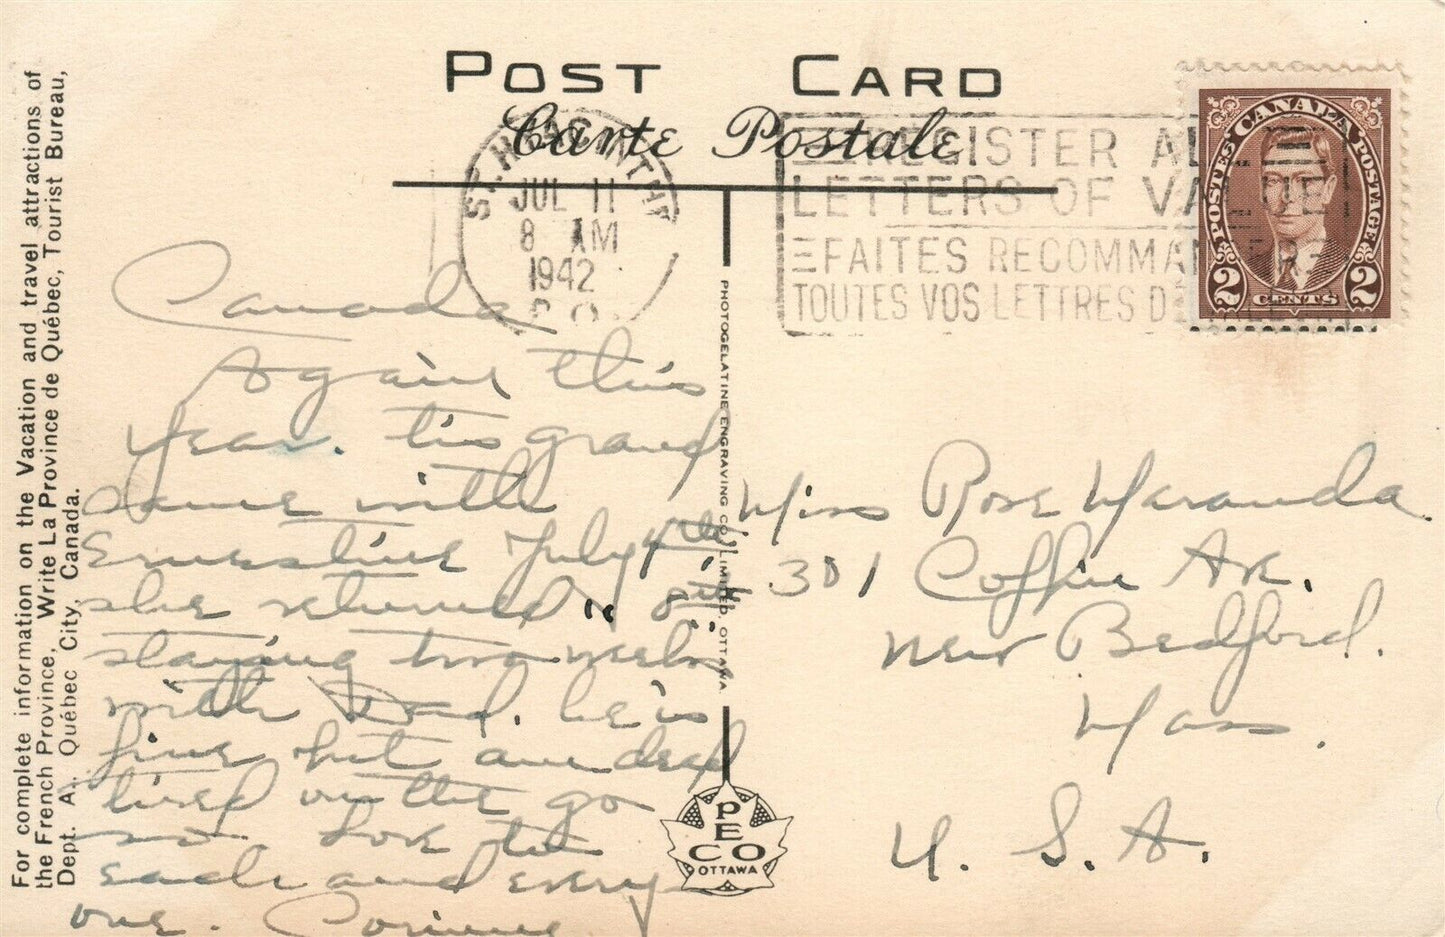 POST CARD
Carte Postale
ST. HYACINTHE
JUL 11
8 AM
1942
P.Q.
REGISTER ALL
LETTERS OF VALUE
FAITES RECOMMANDER
TOUTES VOS LETTRES DE VALEUR
POSTES CANADA POSTAGE
2 CENTS 2
For complete information on the Vacation and travel attractions of
the French Province, Write La Province de Québec, Tourist Bureau,
Dept. A., Québec City, Canada.
Canada
Again this
year. tis grand
came with
Ernestine July 4th
she returned
staying two weeks
with Dad. he is
fine but am dead
tired on the go
Love to
each and every
one. Corinne
PHOTOGELATINE ENGRAVING CO. LIMITED, OTTAWA
PECO
OTTAWA
Miss Rose Maranda
301 Coffin Ave.
New Bedford.
Mass.
U. S. A.